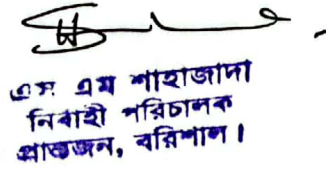 এস এম শাহাজাদা
নিবাহী পরিচালক
প্রান্তজন, বরিশাল।